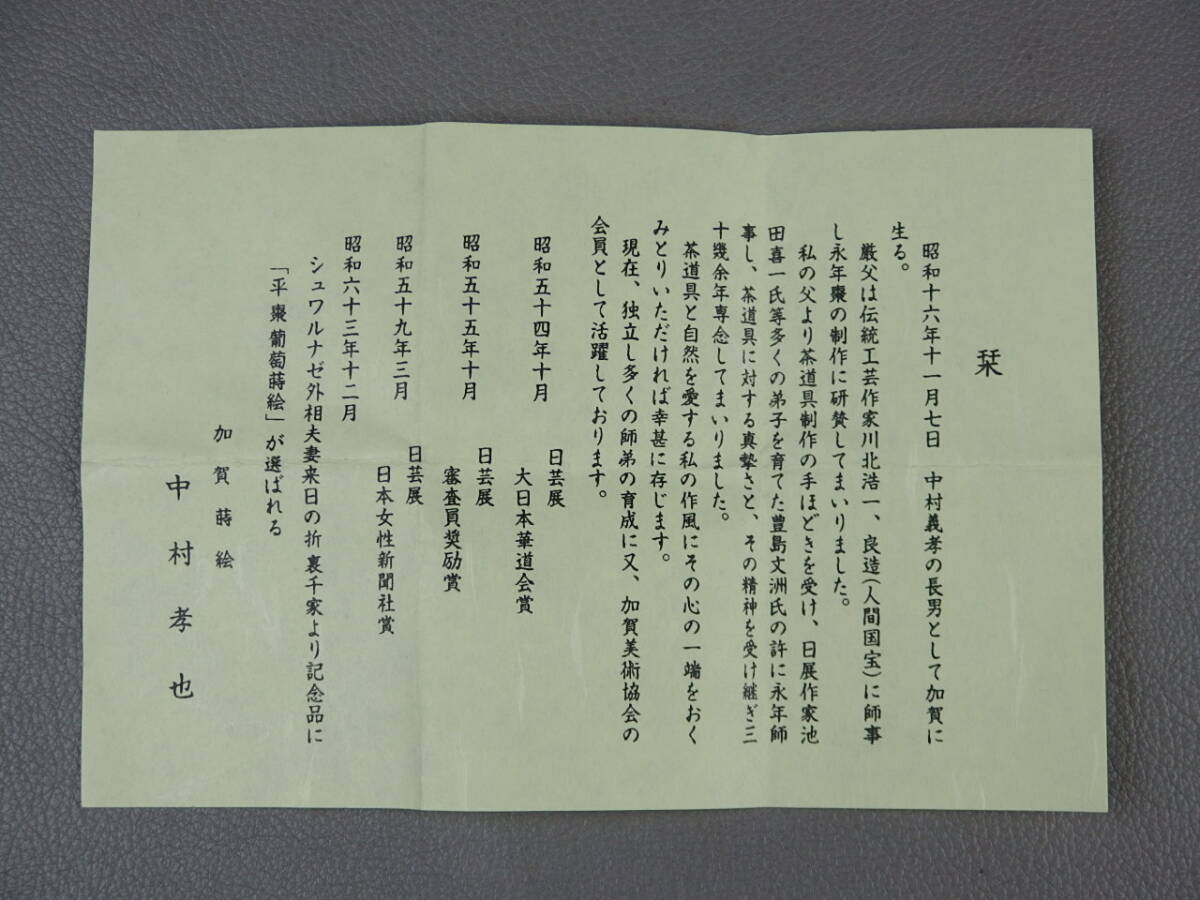 栞
昭和十六年十一月七日　中村義孝の長男として加賀に
生る。
厳父は伝統工芸作家川北浩一、良造（人間国宝）に師事
し永年棗の制作に研賛してまいりました。
私の父より茶道具制作の手ほどきを受け、日展作家池
田喜一氏等多くの弟子を育てた豊島文洲氏の許に永年師
事し、茶道具に対する真摯さと、その精神を受け継ぎ三
十幾余年専念してまいりました。
茶道具と自然を愛する私の作風にその心の一端をおく
みとりいただければ幸甚に存じます。
現在、独立し多くの師弟の育成に又、加賀美術協会の
会員として活躍しております。
昭和五十四年十月　日芸展
大日本華道会賞
昭和五十五年十月　日芸展
審査員奨励賞
昭和五十九年三月　日芸展
日本女性新聞社賞
昭和六十三年十二月
シュワルナゼ外相夫妻来日の折裏千家より記念品に
「平棗葡萄蒔絵」が選ばれる
加賀蒔絵
中村孝也